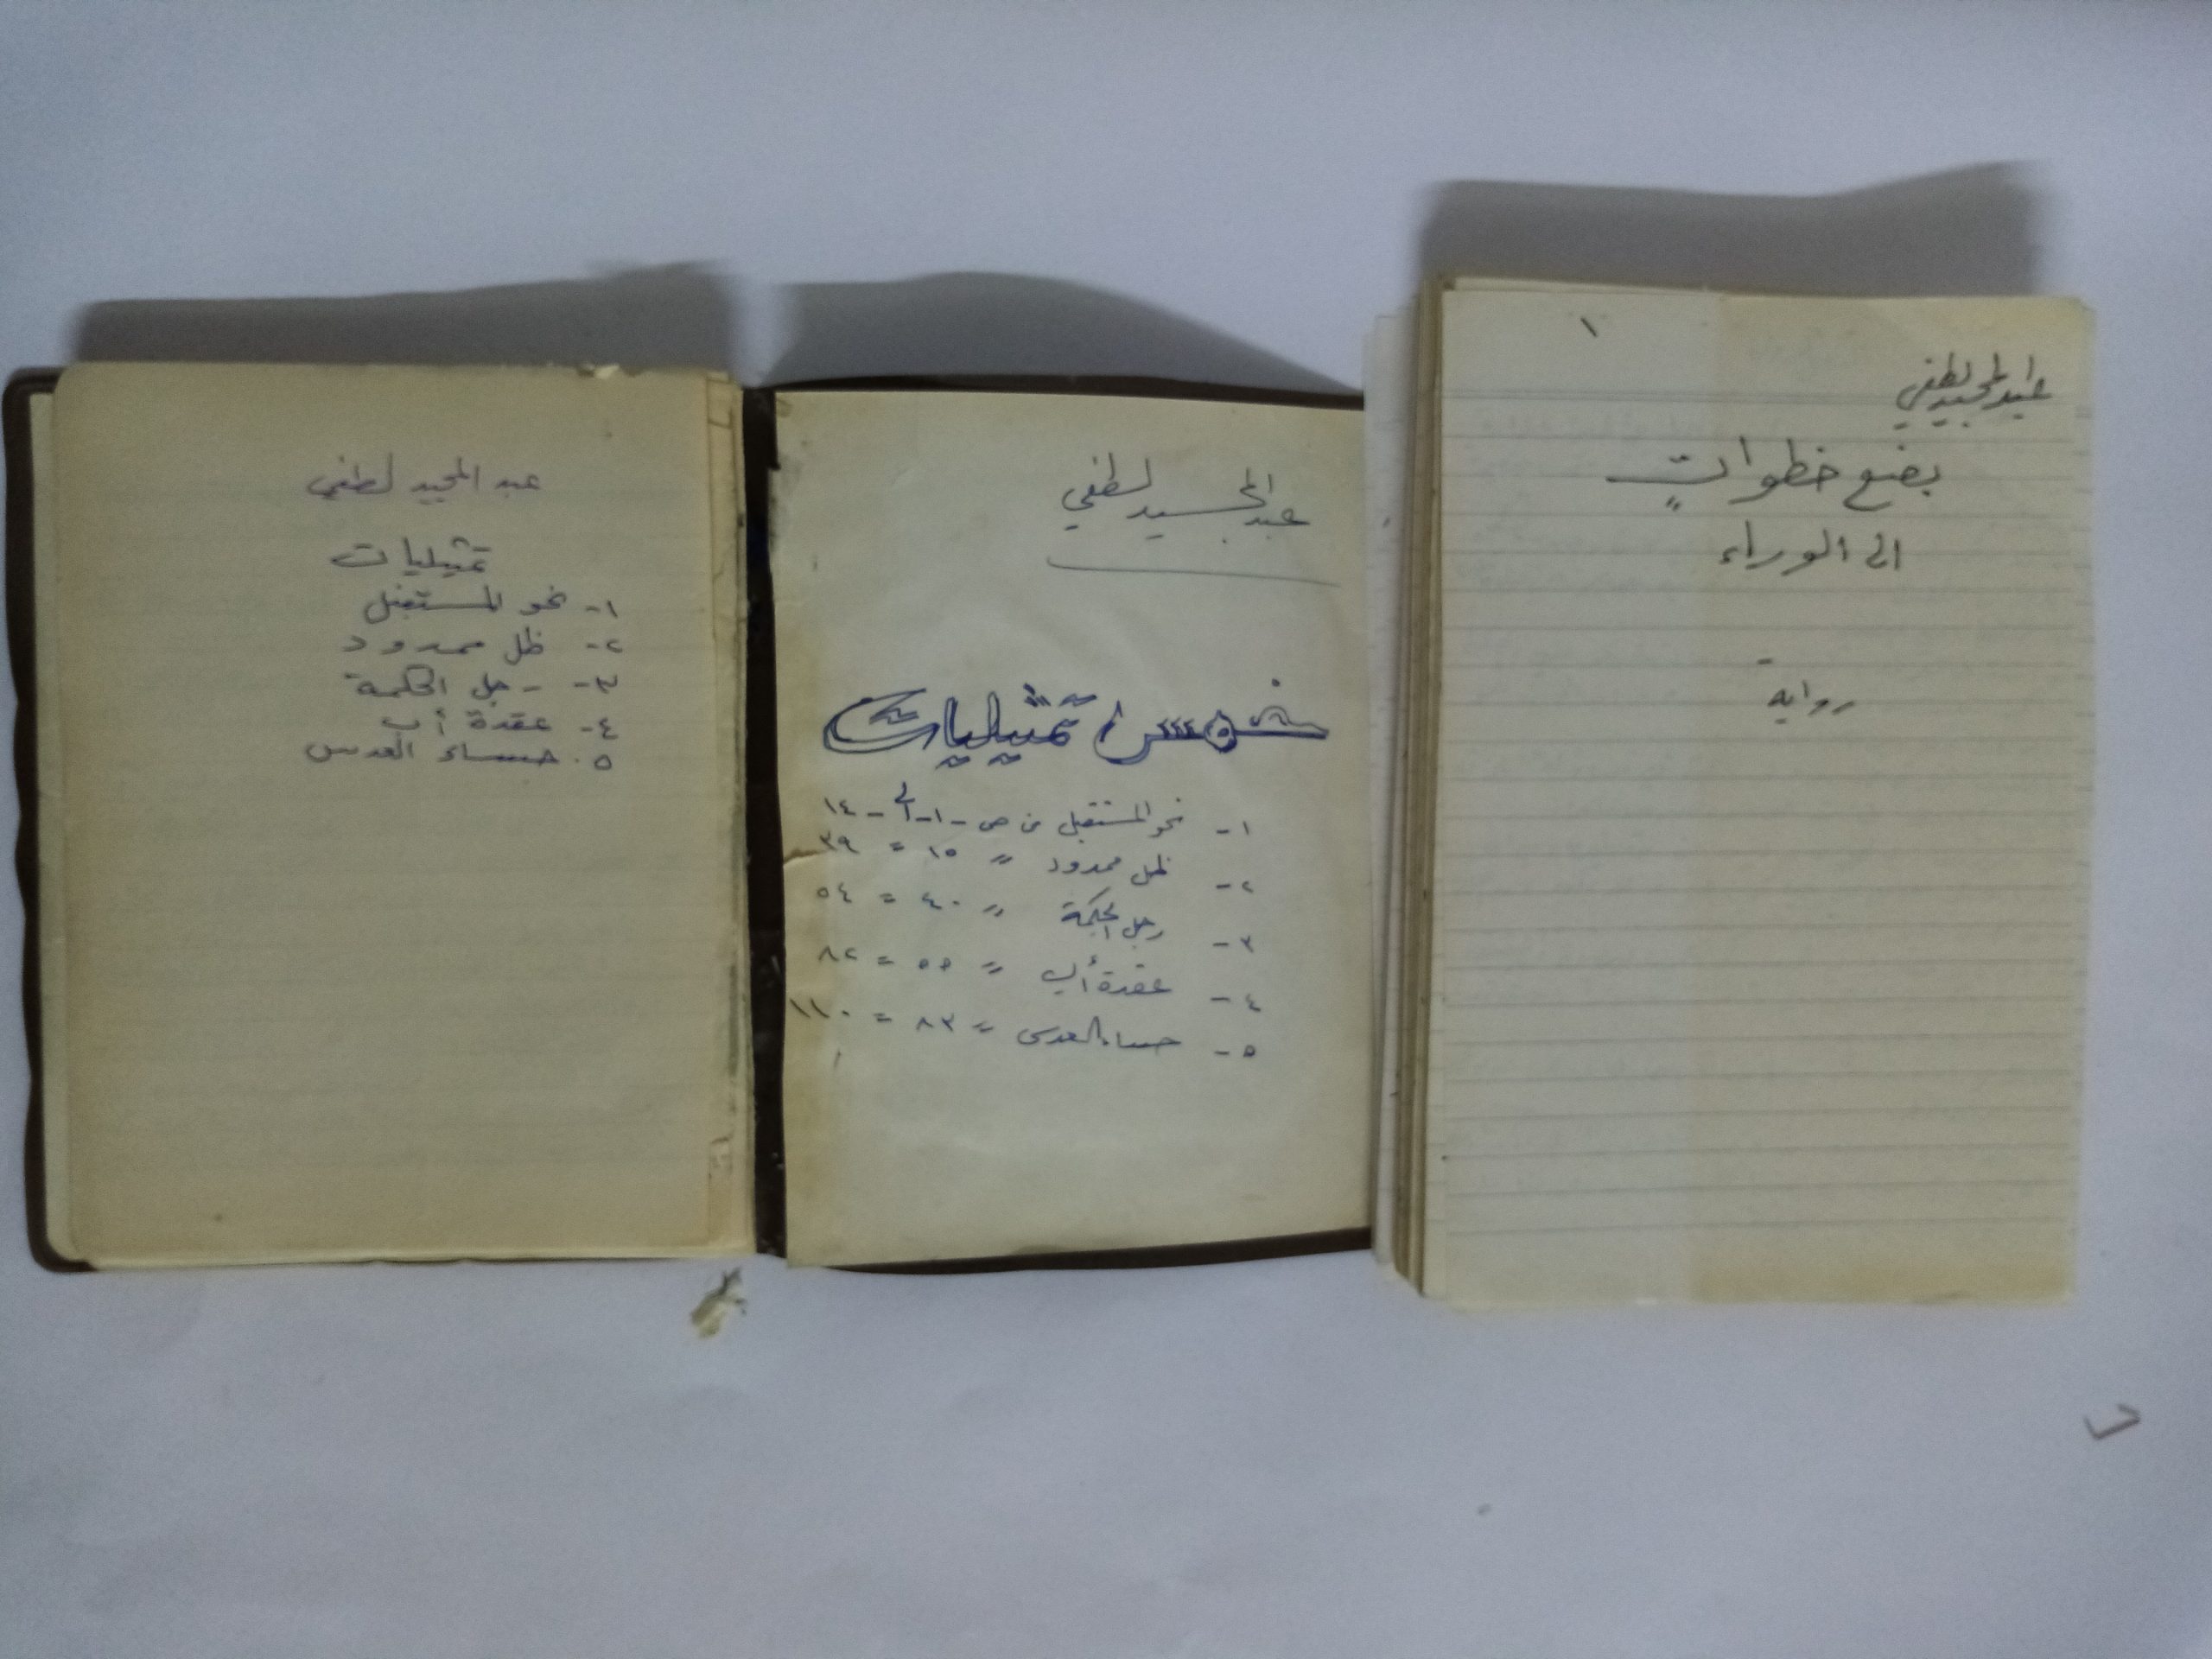 ١
عبد المجيد لطفي
بضع خطواتٍ
الى الوراء
-
رواية
عبد المجيد لطفي
خمس تمثيليات
١- نحو المستقبل من ص - ١ - الى - ١٤
٢- ظل ممدود " ١٥ = ٣٩
٣- رجل الحكمة " ٤٠ = ٥٤
٤- عقدة أب " ٥٥ = ٨٢
٥- حساء العدس " ٨٣ = ١١٠
عبد المجيد لطفي
تمثيليات
١- نحو المستقبل
٢- ظل ممدود
٣- رجل الحكمة
٤- عقدة أب
٥- حساء العدس